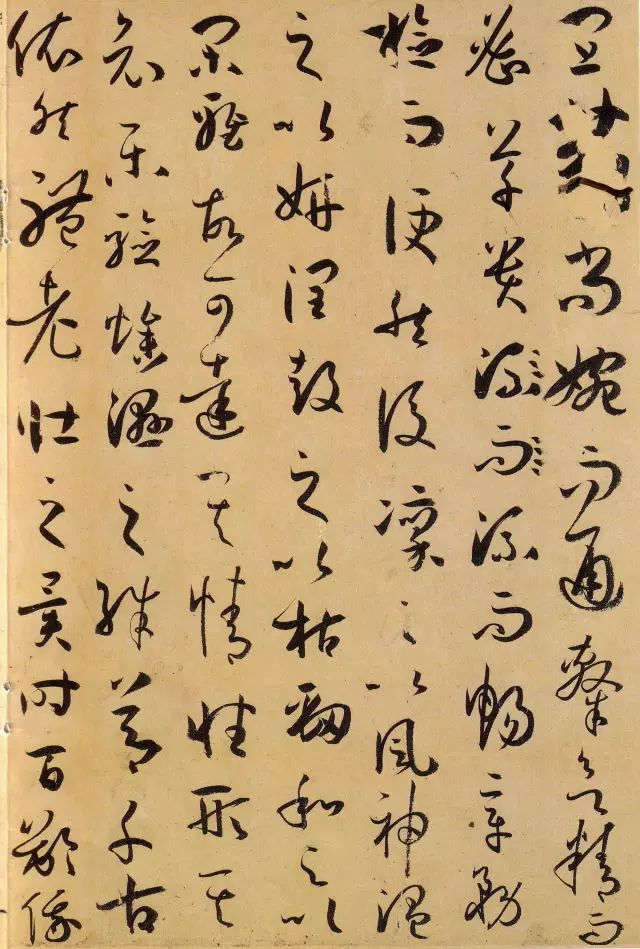 宜篆尚婉而通隸欲精而
密草貴流而流而暢章務
檢而便然後凜之以風神溫
之以妍潤鼓之以枯勁和之以
閑雅故可達其情性形其
哀樂驗燥濕之殊節千古
依然體老壯之異時百齡俄